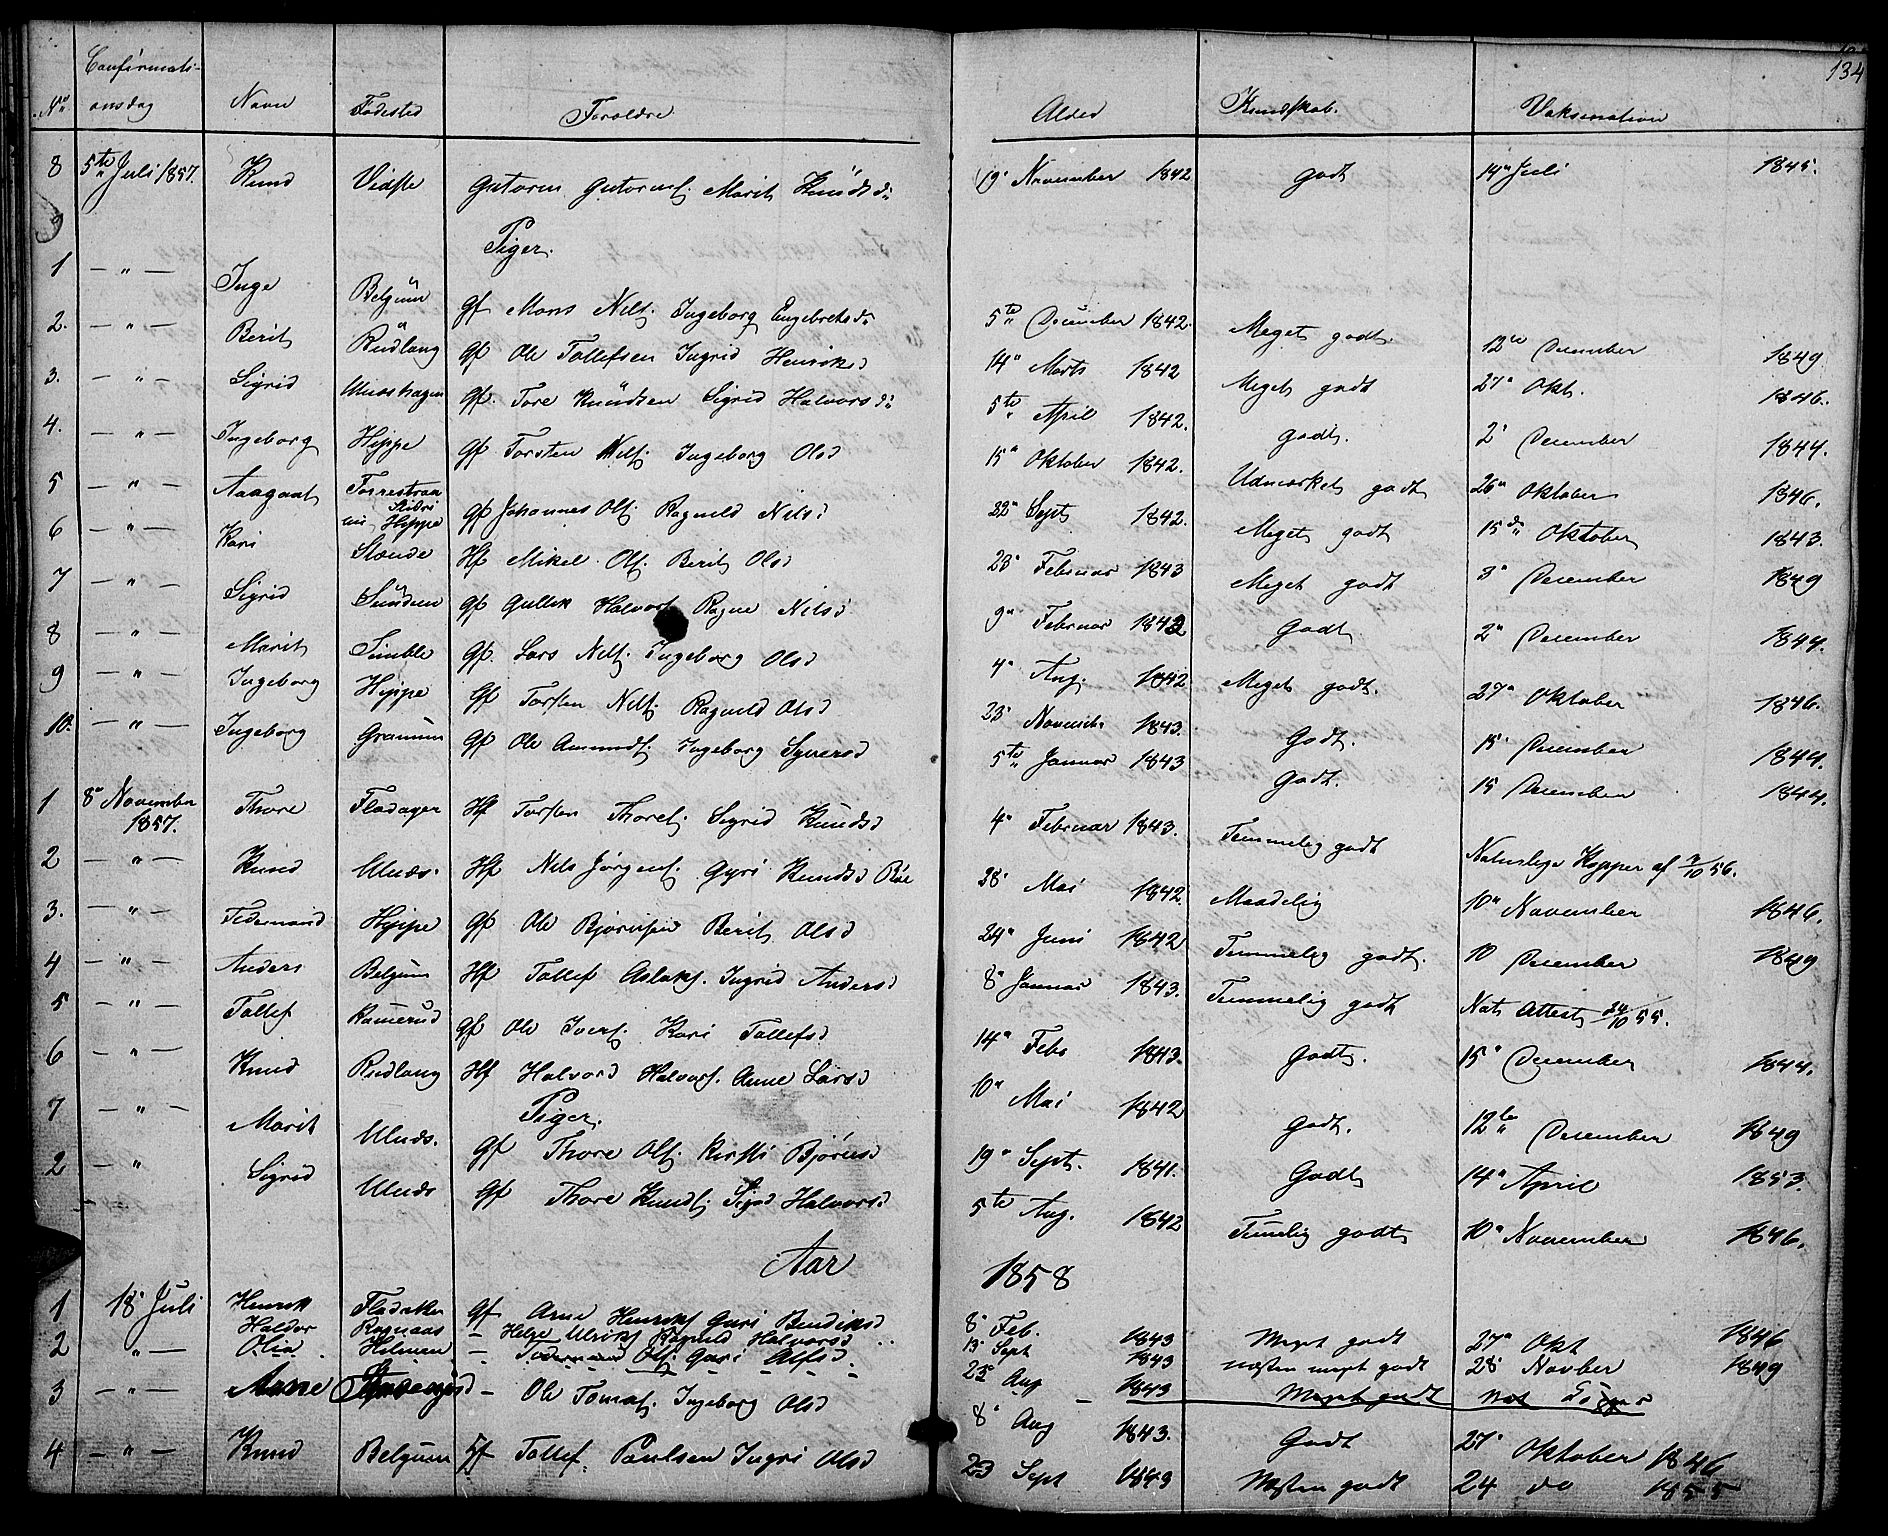 134
No Confirmati-onsdag Navn Fødested Foroldre Alder Kundskab. Vaksination
8 5te Juli 1857. Knud Vidste Gutorm Gutormsf. Marit Knudsd: 19. November 1842 godt 14de Juli 1845.
9
Piger.
1 — " — Inge Belgum Gf Mons Nilsf. Ingeborg Engebretsd: 5te December 1842. Meget godt. 12te December 1849
2. — " — Berit Rudlang Gf Ole Tollefsen Ingrid Henriksd 14" Marts 1842 Meget godt 27" Okt. 1846.
3. — " — Sigrid Ulnæshagen Gf. Tore Knudsen Sigrid Halvorsd: 5te April 1842. godt. 2' December 1844.
4. — " — Ingeborg Hippe Gf Torsten Nilsf. Ingeborg Olsd 15" Oktober 1842. Udmærket godt 26" Oktober 1846.
5 — " — Aagaat Hippe Gf Johannes Olsf. Ragnild Nilsd 22" Sept 1842. Meget godt 15de Oktober 1843.
6 — " — Kari Stænde Hf Mikel Olsf. Berit Olsd 23' Februar 1843 Meget godt 8" December 1849
7 — " — Sigrid Sundem Gf Gullik Halvorsf Ragne Nilsd 9" Februar 1842 Godt 2" December 1844.
8 — " — Marit Semble Gf. Lars Nilsf. Ingeborg Olsd 4" Aug. 1842 Meget godt. 27" Oktober 1846.
9 — " — Ingeborg Hippe Gf Torsten Nilsf. Ragnild Olsd 23' Novemb. 1843. Godt. 15' December 1844.
10. — " — Ingeborg Gramum Gf Ole Amundsf. Ingeborg Syversd 5te Januar 1843 Godt. 15 December 1844.
1 8" November 1857. Thore Fladager Hf Torsten Thoresf. Sigrid Knudsd 4" Februar 1843. Temmelig godt Naturlige Kopper af 7/10 56.
2 — " — Knud Ulnæs. Hf Nils Jørgensf. Gyri Knudsd Røe 28' Mai 1842. Maadelig 10" November 1846.
3. — " — Tidemand Hippe Gf Ole Bjørnsen Berit Olsd 24" Juni 1842 Temmelig godt. 10 December 1849
4 — " — Anders Belgum Hf Tollef Aslaksf. Ingrid Andersd 8" Januar 1843. Temmelig godt Nat. Attest 24/10 55.
5 — " — Tollef Kamerud Gf Ole Iversf. Kari Tollefsd 14" Febr 1843. Godt. 15" December 1844.
6 — " — Knud Rudlang Hf Halvord Halvorsf. Anne Larsd 10" Mai 1842 Godt. 12te December 1849
Piger.
7 — " — Marit Ulnæs. Gf Thore Olsf. Kirsti Bjørnsd 19" Sept. 1841. Godt 14" April 1853.
2 — " Sigrid Ulnæs Gf Thore Knudsf. Sigrid Halvorsd 5te Aug. 1842 Temelig godt 10" November 1846.
Aar 1858
1 18' Juli Henrik Fladaker Gf Arne Henriksf Guri Bendiksd 8" Feb. 1843 Meget godt 27" Okt 1846
2 " — Haldor Ragnaas — Helge Ulriksf Ragnild Halvorsd 13' Sept 1843 næsten meget godt 28' Novber 1849
Olia Helmen — Tidemand Olsf. Guri Alfsd 25 Aug 1843 Meget godt
3 — " — Arne — Ole Tomasf. Ingeborg Olsd 8" Aug 1843. Godt 27' Oktober 1846
4 — " — Knud Belgum Hf Tollef Paulsen Ingri Olsd 23 Sept 1843 Næsten godt 24 do 1855